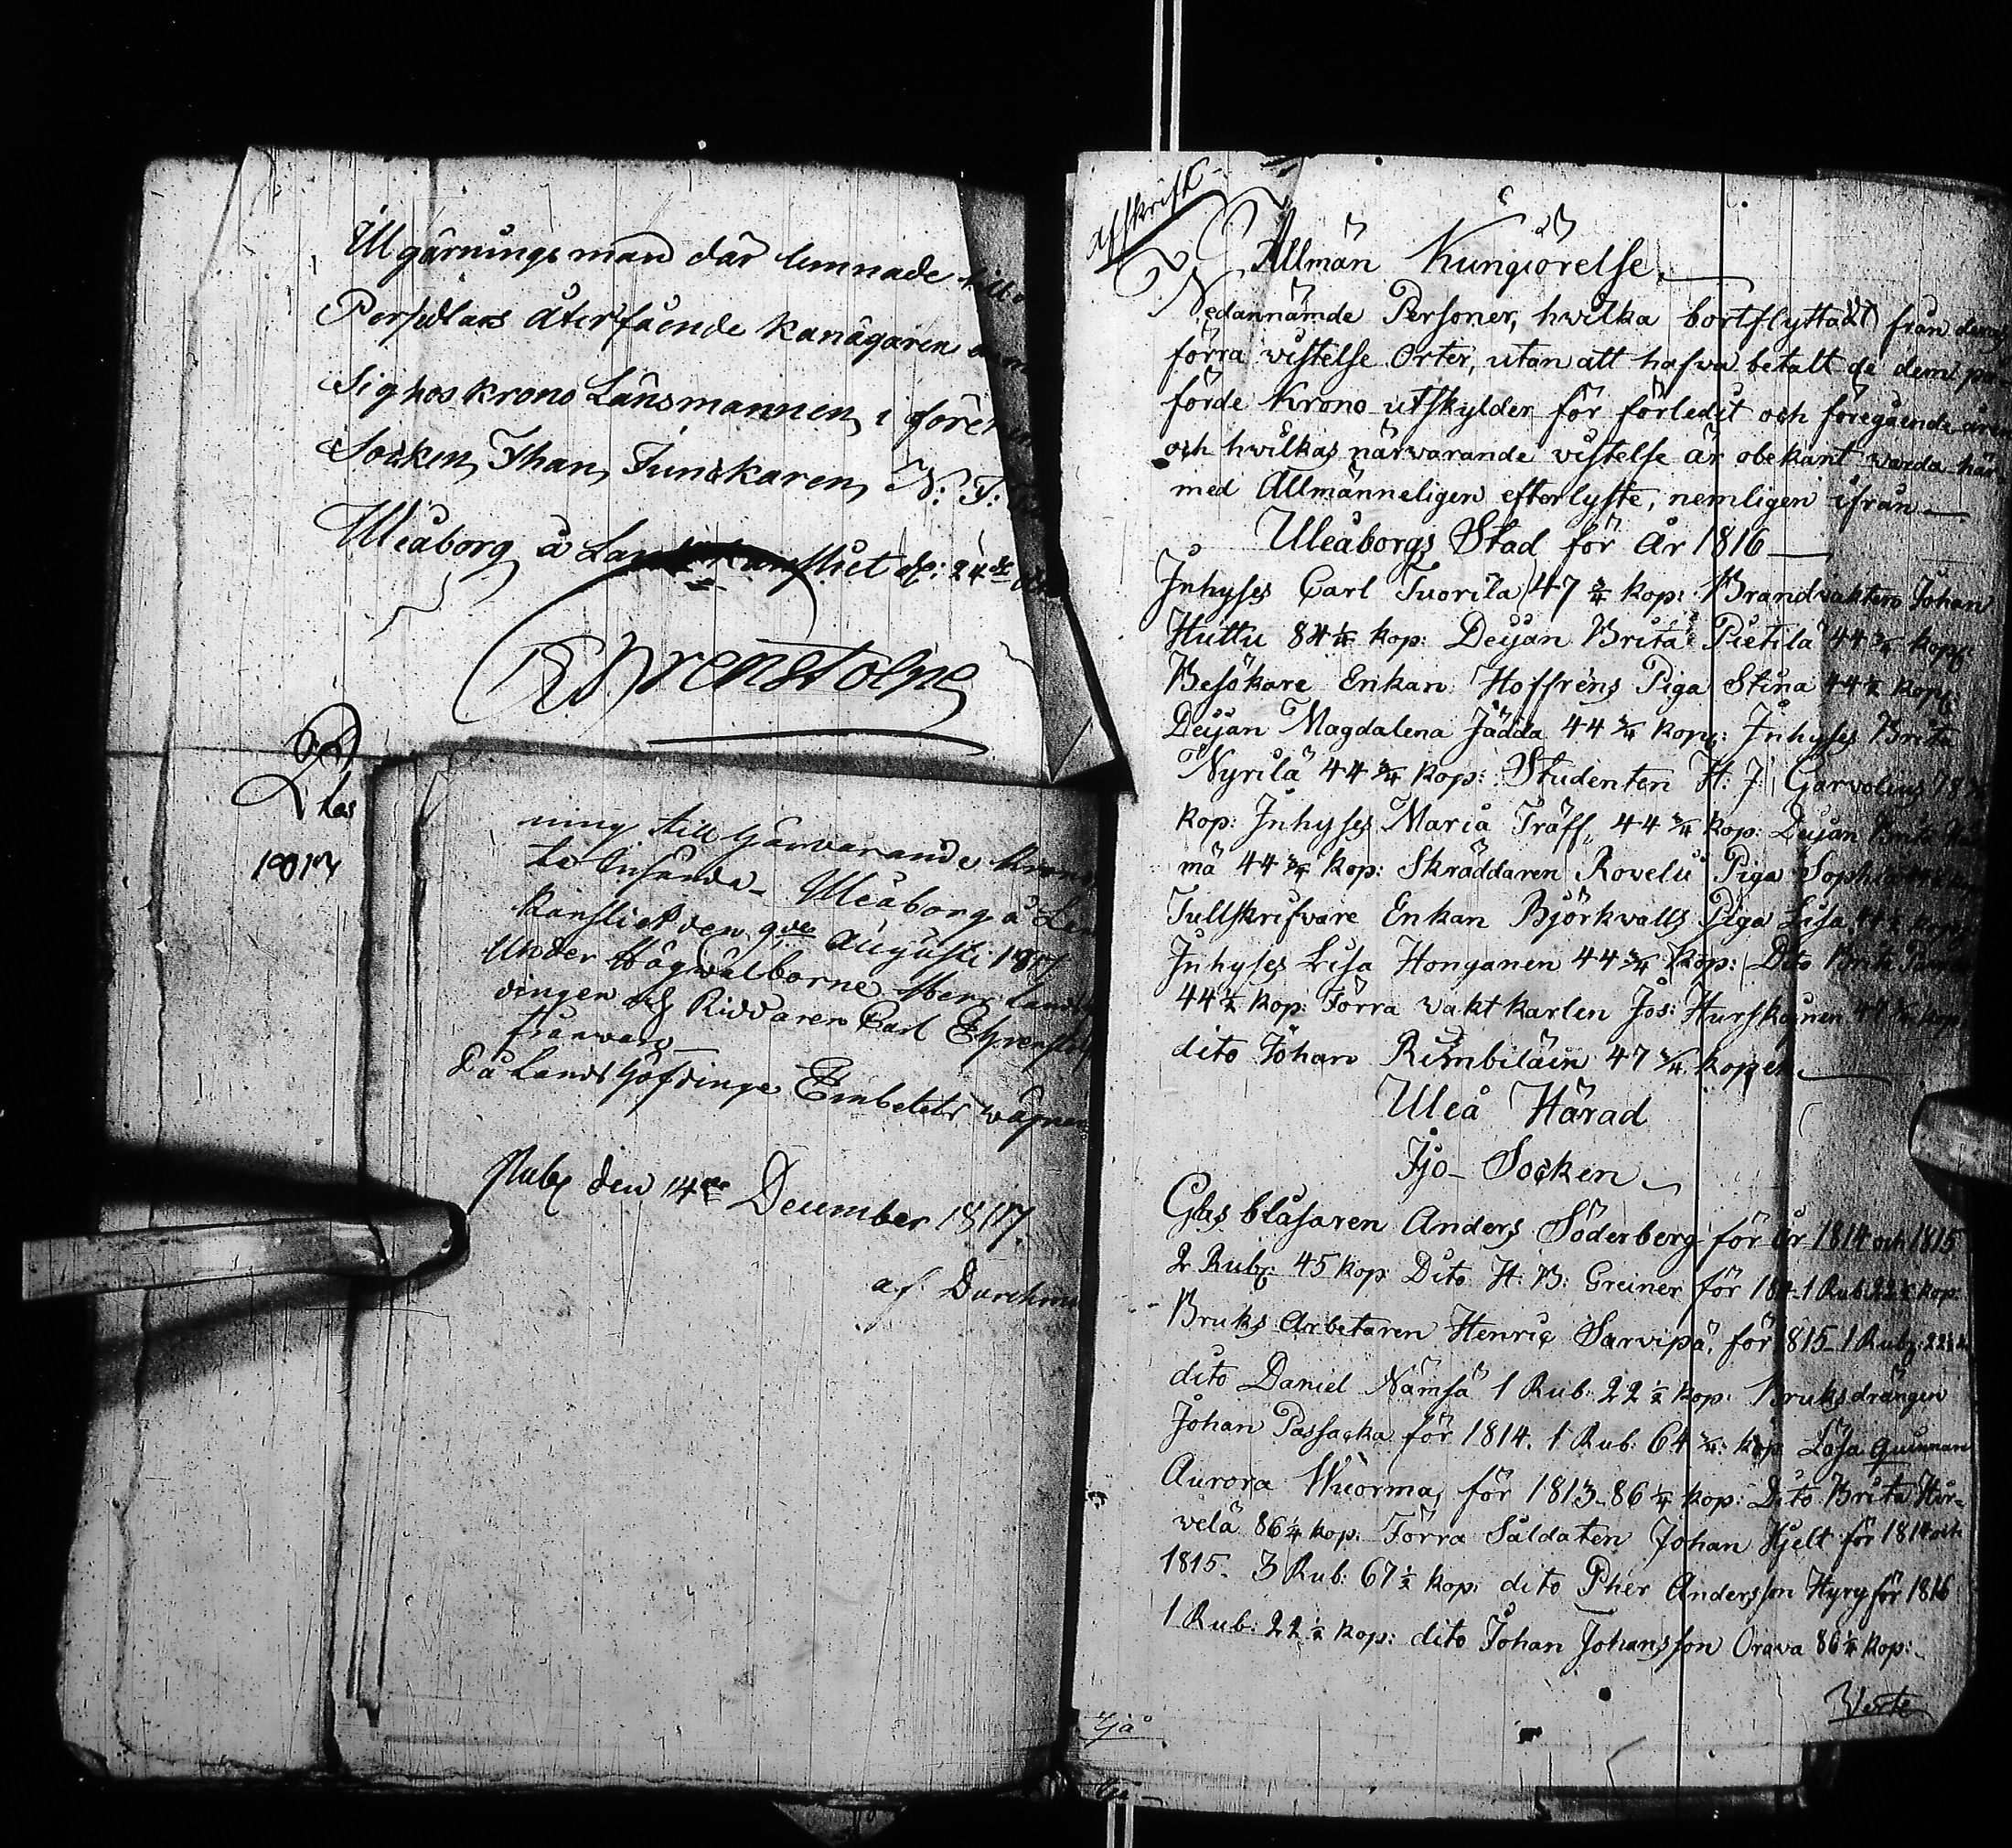 Illgärningsman där lemnade
Persedlars återfående kan ägaren
sig hos Krono Länsmannen i
Socken, Johan Tunckaren N: T:
Uleåborg å Lands Kansliet d: 24de
Ehrenstolpe
Lhas
1817
ning till hvarvarande Krono
te insända. Uleåborg å
Kansliet den 9de Augusti 1817
Under Högvälborne Herr Lands
dingen och Riddaren Carl Ehrenstolpe
frånvaro
På Landshöfdinge Embetets vägnar
Publ den 14de December 1817.
af
Afskrift
Allmän Kungiörelse.
Nedannämde Personer, hvilka bortflyttadt från deras
förra vistelse Orter, utan att hafva betalt de dem på
förde Krono utskylder för förledit och föregående åren
och hvilkas närvarande vistelse är obekant warda här
med Allmänneligen efterlyste, nemligen ifrån
Uleåborgs Stad för År 1816
Inhyses Carl Tuorila 47 ¾ kop: Brandvakten Johan
Huttu 84 ¼ kop: Deijan Brita Pietilä 44 ¾ kop:
Besökare Enkan Hoffrens Piga Stina 44 ½ kop:
Deijan Magdalena Jädda 44 ¾ kop: Inhyses Brita
Nyrilä 44 ¾ kop: Studenten H: J: Garvolius 78
kop: Inhyses Maria Träff, 44 ¾ kop: Deijan Brita
mä 44 ¾ kop: Skräddaren Rovelii Piga Sophia
Tullskrifvare Enkan Björkvalls Piga Lisa 44 ½ kop:
Inhyses Lisa Honganen 44 ¾ kop: Dito Brita
44 ½ kop: Förra vakt karlen Jos: Hurskainen 47 ¾ kop:
dito Johan Rimbiläin 47 ¾ kopek.
Uleå Härad
Ijo Socken
Glasblåsaren Anders Söderberg för år 1814 och 1815
2 Rub: 45 kop: Dito H: B: Greiner för 1 Rub: 22 ½ kop:
Bruks Arbetaren Henric Sarvipä, för 1815 1 Rub: 22 ½ k
dito Daniel Nämsä 1 Rub: 22 ½ kop: Bruksdrängen
Johan Passacka för 1814. 1 Rub: 64 ¾ kop Lösa Quinnan
Aurora Wuorma, för 1813 86 ¼ kop: Dito Brita Hir-
velä 86 ¼ kop: Förra Saldaten Johan Hjelt för 1814 och
1815. 3 Rub: 67 ½ kop: dito Pher Andersson Hyry för 1816
1 Rub: 22 ½ kop: dito Johan Johansson Orava 86 ¼ kop:
Verte